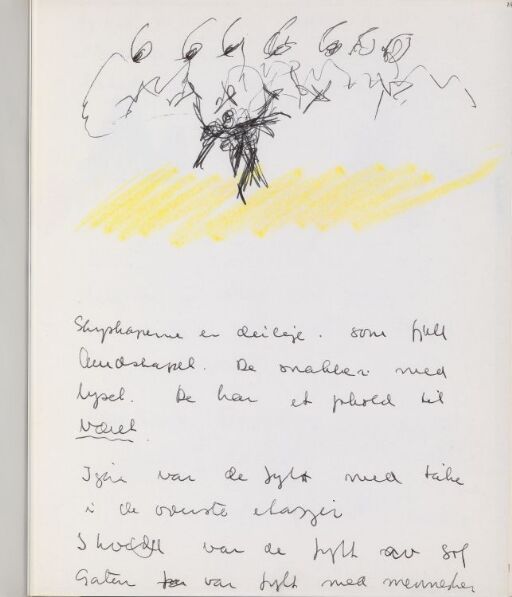 Skyskaperne er deilige. som fjell
landskapet. De snakker med
lyset. De har et phold til
været.
Igår var de fyllt med tåke
i de øverste etasjer
I kveld var de fyllt av sol
Gaten var fyllt med mennesker